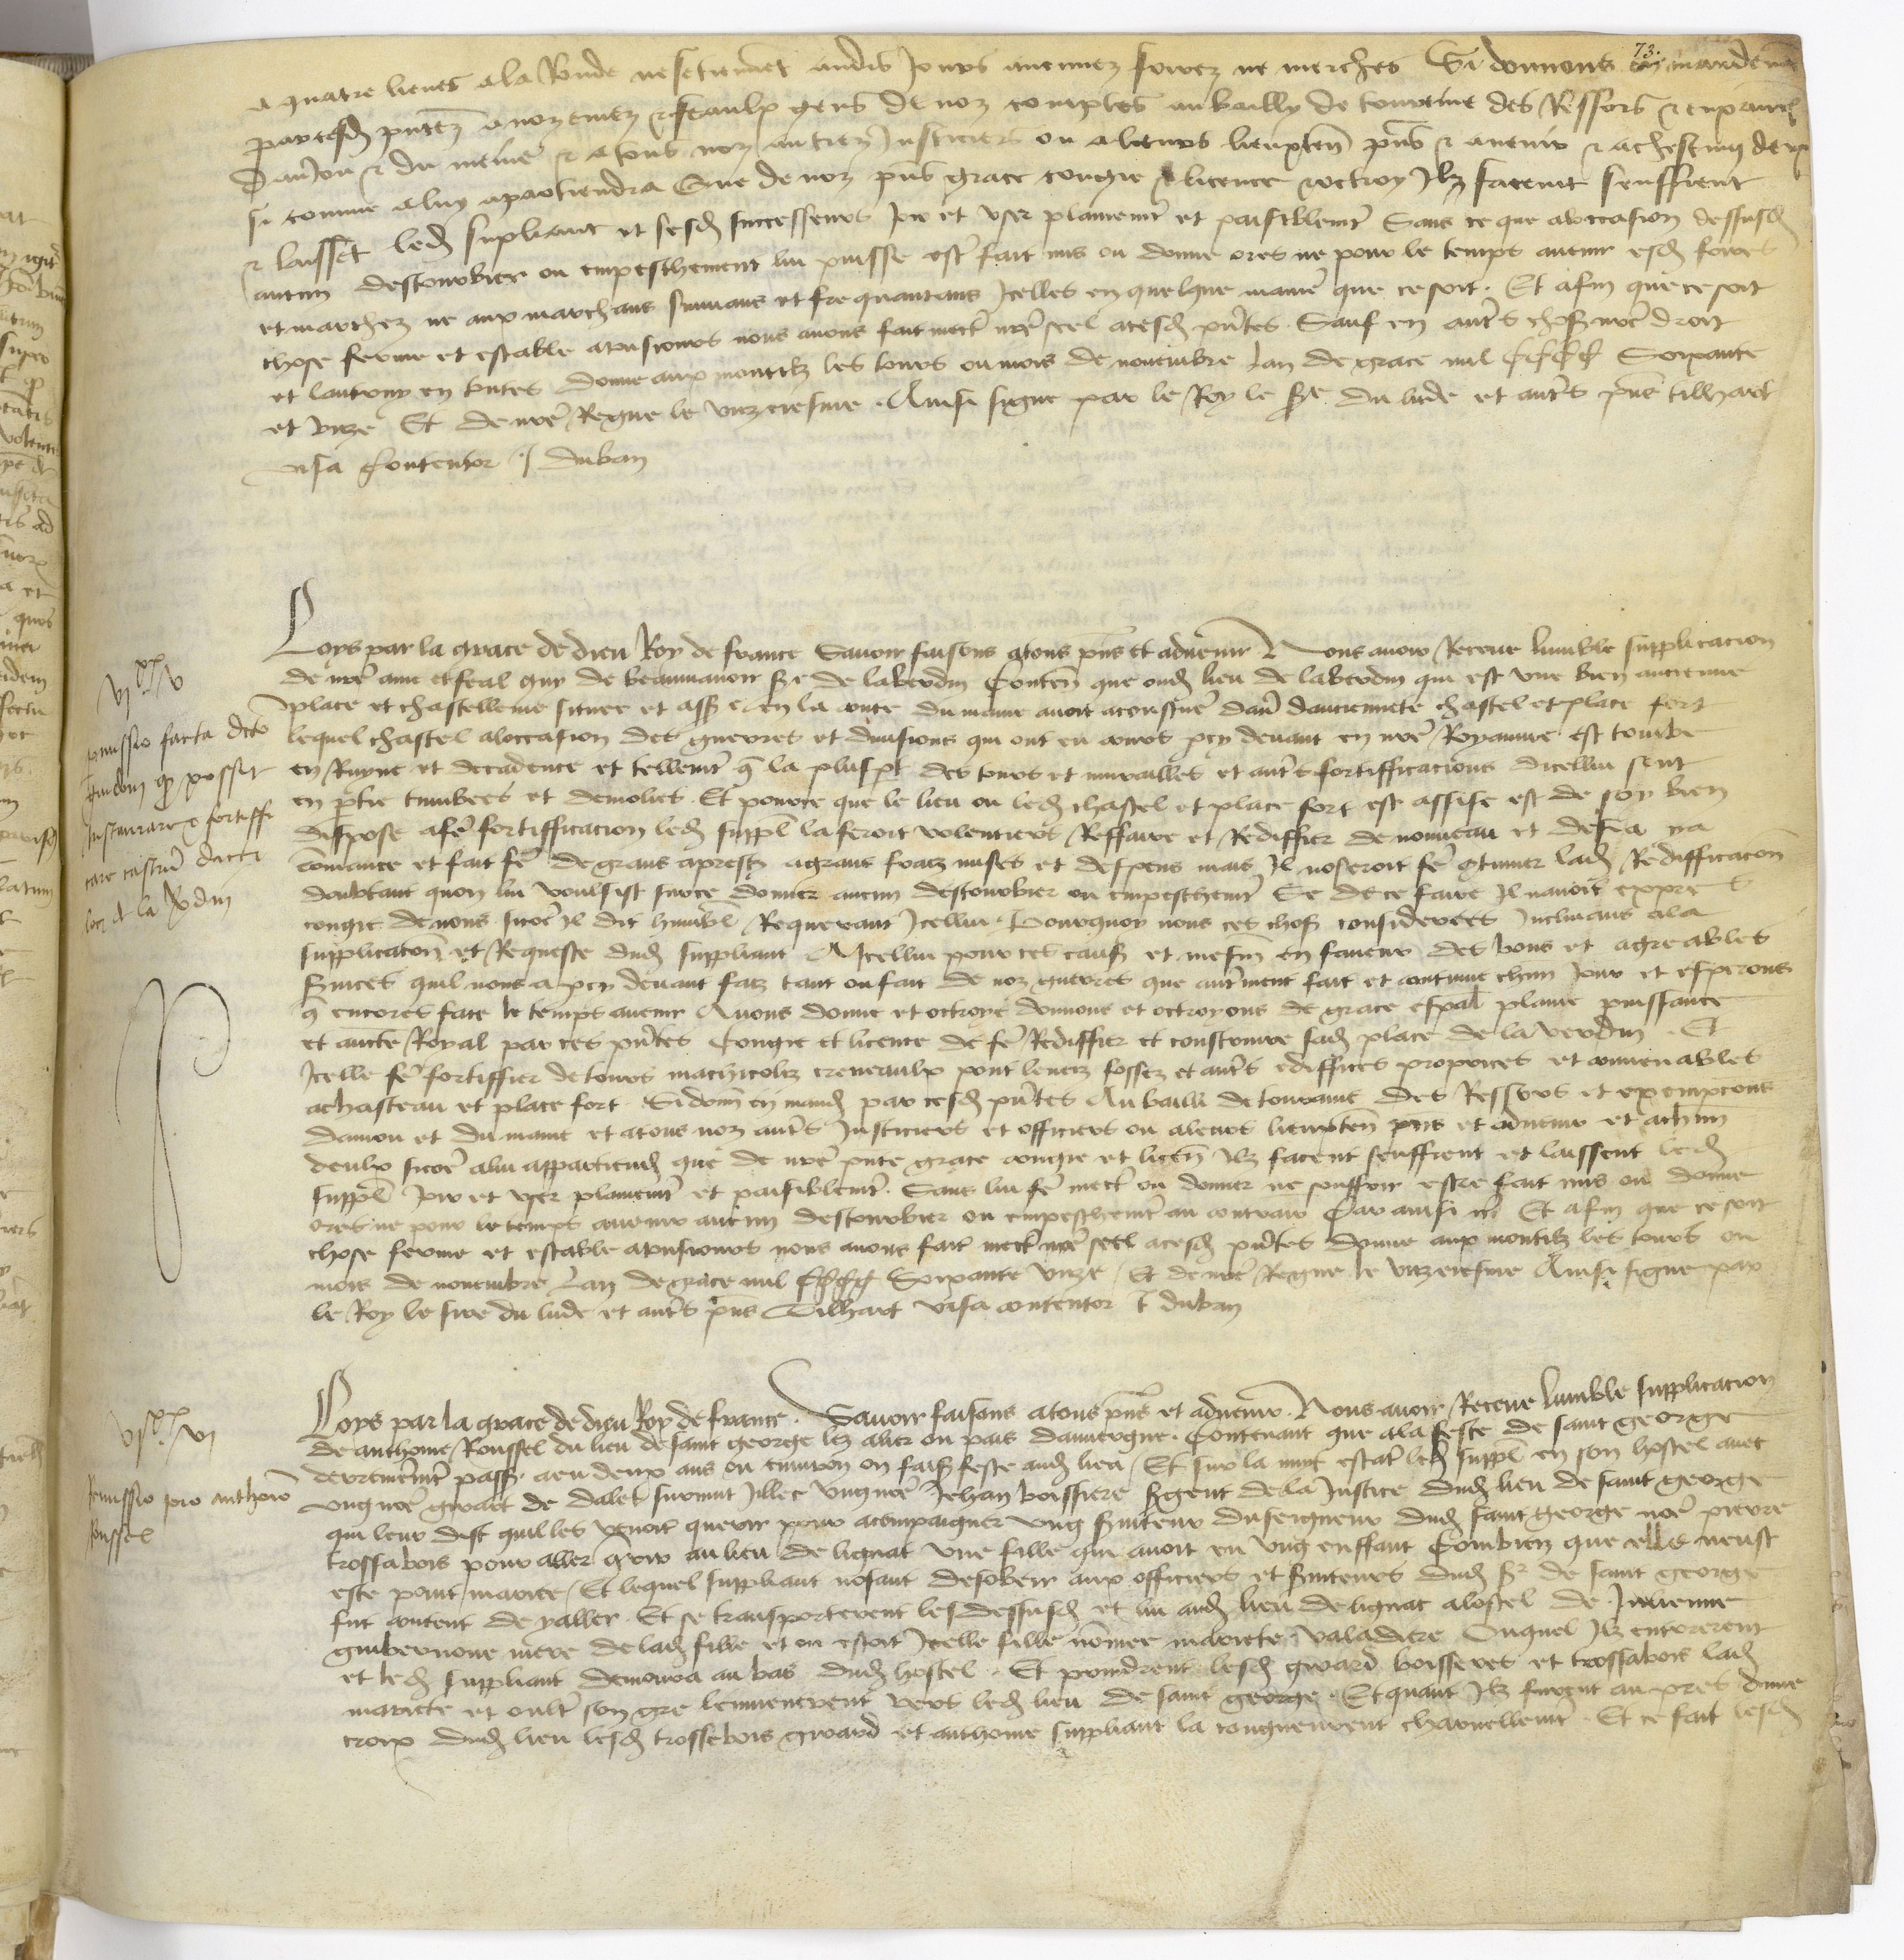 73.
a quatre lieues a la Ronde ne se tiennent ausdis Jours aucunes foires ne marches Si donnons en mandement
par cesd presentes a noz amez et feaulx gens de noz comptes au bailly de touraine des Ressors et exempcions
Danjou et du maine et a tous noz autres Justiciers ou a leurs lieuxten pns et avenir et a chescun deulx
si comme a luy apartiendra Que de noz pns grace congie licence et octroy Ilz facent seuffrent
et laissent led supliant et sesd successeurs joir et user plainement et paisiblement Sans ce que a loccasion dessusd
aucun destourbier ou empeschement lui puisse estre fait mis ou donne ores ne pour le temps avenir esd foires
et marchez ne aux marchans suivans et frequantans Icelles en quelque maniere que ce soit . Et afin que ce soit
chose ferme et estable a tousjours nous avons fait mectre nre scel a cesd pntes . Sauf en autres choses nre droit
et lautruy en toutes Donne aux montilz les tours ou mois de novembre Lan de grace mil CCCC Soixante
et unze Et de nre Regne le unzeiesme . Ainsi signe par le Roy le sire du lude et autres pns tilhart
visa Contentor J duban
VIxx V
Loys par la grace de dieu Roy de france Savoir faisons a tous pns et advenir Nous avoir Receue lumble supplicacion
de nre ame et feal guy de beaumanoir sr de labverdin Conten que oud lieu de labverdin qui est une bien ancienne
place et chastellenie situee et assise en la conte du maine avoit acoustume davoir danciennete chastel et place fort
lequel chastel a loccasion des guerres et divisions qui ont eu cours par cy devant en nre Royaume est tombe
en Ruyne et decadence et tellement que la pluspart des tours et murailles et autres fortifficacions dicellui sont
en partie tumbees et demolies . Et pource que le lieu ou led chastel et place fort est assise est de soy bien
dispose a faire fortifficacion led suppl la feroit voulentiers Reffaire et Rediffier de nouveau et desja na
commance et fait faire de grans aprestz a grans fraiz mises et despens mais Il noseroit faire continuer lad Redifficacion
doubtant quon lui voulsist sur ce donner aucun destourbier ou empeschement Se de ce faire Il navoit expres
congie de nous sicome Il dit humbl Requerant Icellui . Pourquoy nous ces choses considerees Inclinans a la
supplicacion et Requeste dud suppliant A Icellui pour ces causes et mesmement en faveur des bons et agreables
services quil nous a par cy devant faiz tant ou fait de noz guerres que autrement fait et continue chun jour et esperons
que encores face le temps avenir Avons donne et octroye donnons et octroyons de grace espal plaine puissance
et aucte Royal par ces pntes Congie et licence de faire Rediffier et construire sad place de laverdin . Et
Icelle faire fortiffier de tours machicoliz creneaulx pont leveiz fossez et autres ediffices propices et convenables
a chasteau et place fort . Si donn en mand par cesd pntes Au bailli de touraine Des Ressors et exempcions
danjou et du maine et a tous noz autres Justiciers et officiers ou a leurs lieuxten pns et advenir et a chun
deulx sicome a lui appartiend que de nre pnte grace congie et licen Ilz facent seuffrent et laissent led
suppl joir et user plainement et paisiblement . Sans lui faire mectre ou donner ne souffrir estre fait mis ou donne
ores ne pour le temps avenir aucun destourbier ou empeschement au contraire Car ainsi etc Et afin que ce soit
chose ferme et estable a tousjours nous avons fait mectre nre scel a cesd pntes Donne aux montilz les tours ou
mois de novembre Lan de grace mil CCCC Soixante unze Et de nre Regne le unzeiesme Ainsi signe par
le Roy le sire du lude et autres pns Tilhart Visa contentor J duban
VIxx VI
Remissio pro anthonio Roussel
Loys par la grace de dieu Roy de france . Savoir faisons a tous pns et advenir . Nous avoir Receue lumble supplicacion
de anthoine Roussel du lieu de saint george lez alier ou pais dauvergne . Contenant que a la feste de saint george
derrenierement passee a eu deux ans ou environ on faisoit feste aud lieu Et sur la nuit estant led suppl en son hostel avec
ung nomme girart de dalet survint Illec ung nomme Jehan boissiere sergent de la Justice dud lieu de saint george
qui leur dist quil les venoit querir pour acompaigner ung serviteur du seigneur dud saint george nomme pierre
trossabois pour aller querir au lieu de lignat une fille qui avoit eu ung enffant Combien que elle neust
este point mariee Et lequel suppliant nosant desobeir aux officiers et serviteurs dud sr de saint george
fut content de y aller . Et se transporterent les dessusd et lui aud lieu de lignat a lostel de Julienne
guibernone mere de lad fille et ou estoit Icelle fille nommee mariete valadiere Ouquel Ilz entrerent
et led suppliant demoura au bas dud hostel . Et prindrent lesd girard boisseres et trossabois lad
mariete et oultre son gre lemmenerent vers led lieu de saint george . Et quant Ilz furent au pres dune
croix dud lieu lesd trossebois girard et anthoine suppliant la congneurent charnellement . Et ce fait lesd